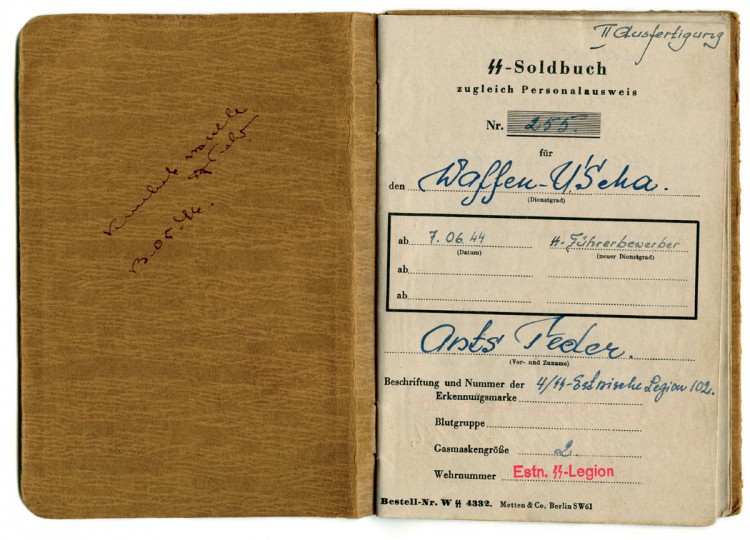 13.05.44.
II Ausfertigung
ᛋᛋ-Soldbuch
zugleich Personalausweis
Nr. 255.
für
den Waffen-U'Scha.
(Dienstgrad)
ab 7.06.44 ᛋᛋ-Führerbewerber
(Datum) (neuer Dienstgrad)
ab
ab
Ants Feder.
(Vor- und Zuname)
Beschriftung und Nummer der 4/ᛋᛋ-Estnische Legion 102.
Erkennungsmarke
Blutgruppe
Gasmaskengröße 2.
Wehrnummer Estn. ᛋᛋ-Legion
Bestell-Nr. W ᛋᛋ 4332. Metten & Co., Berlin SW61